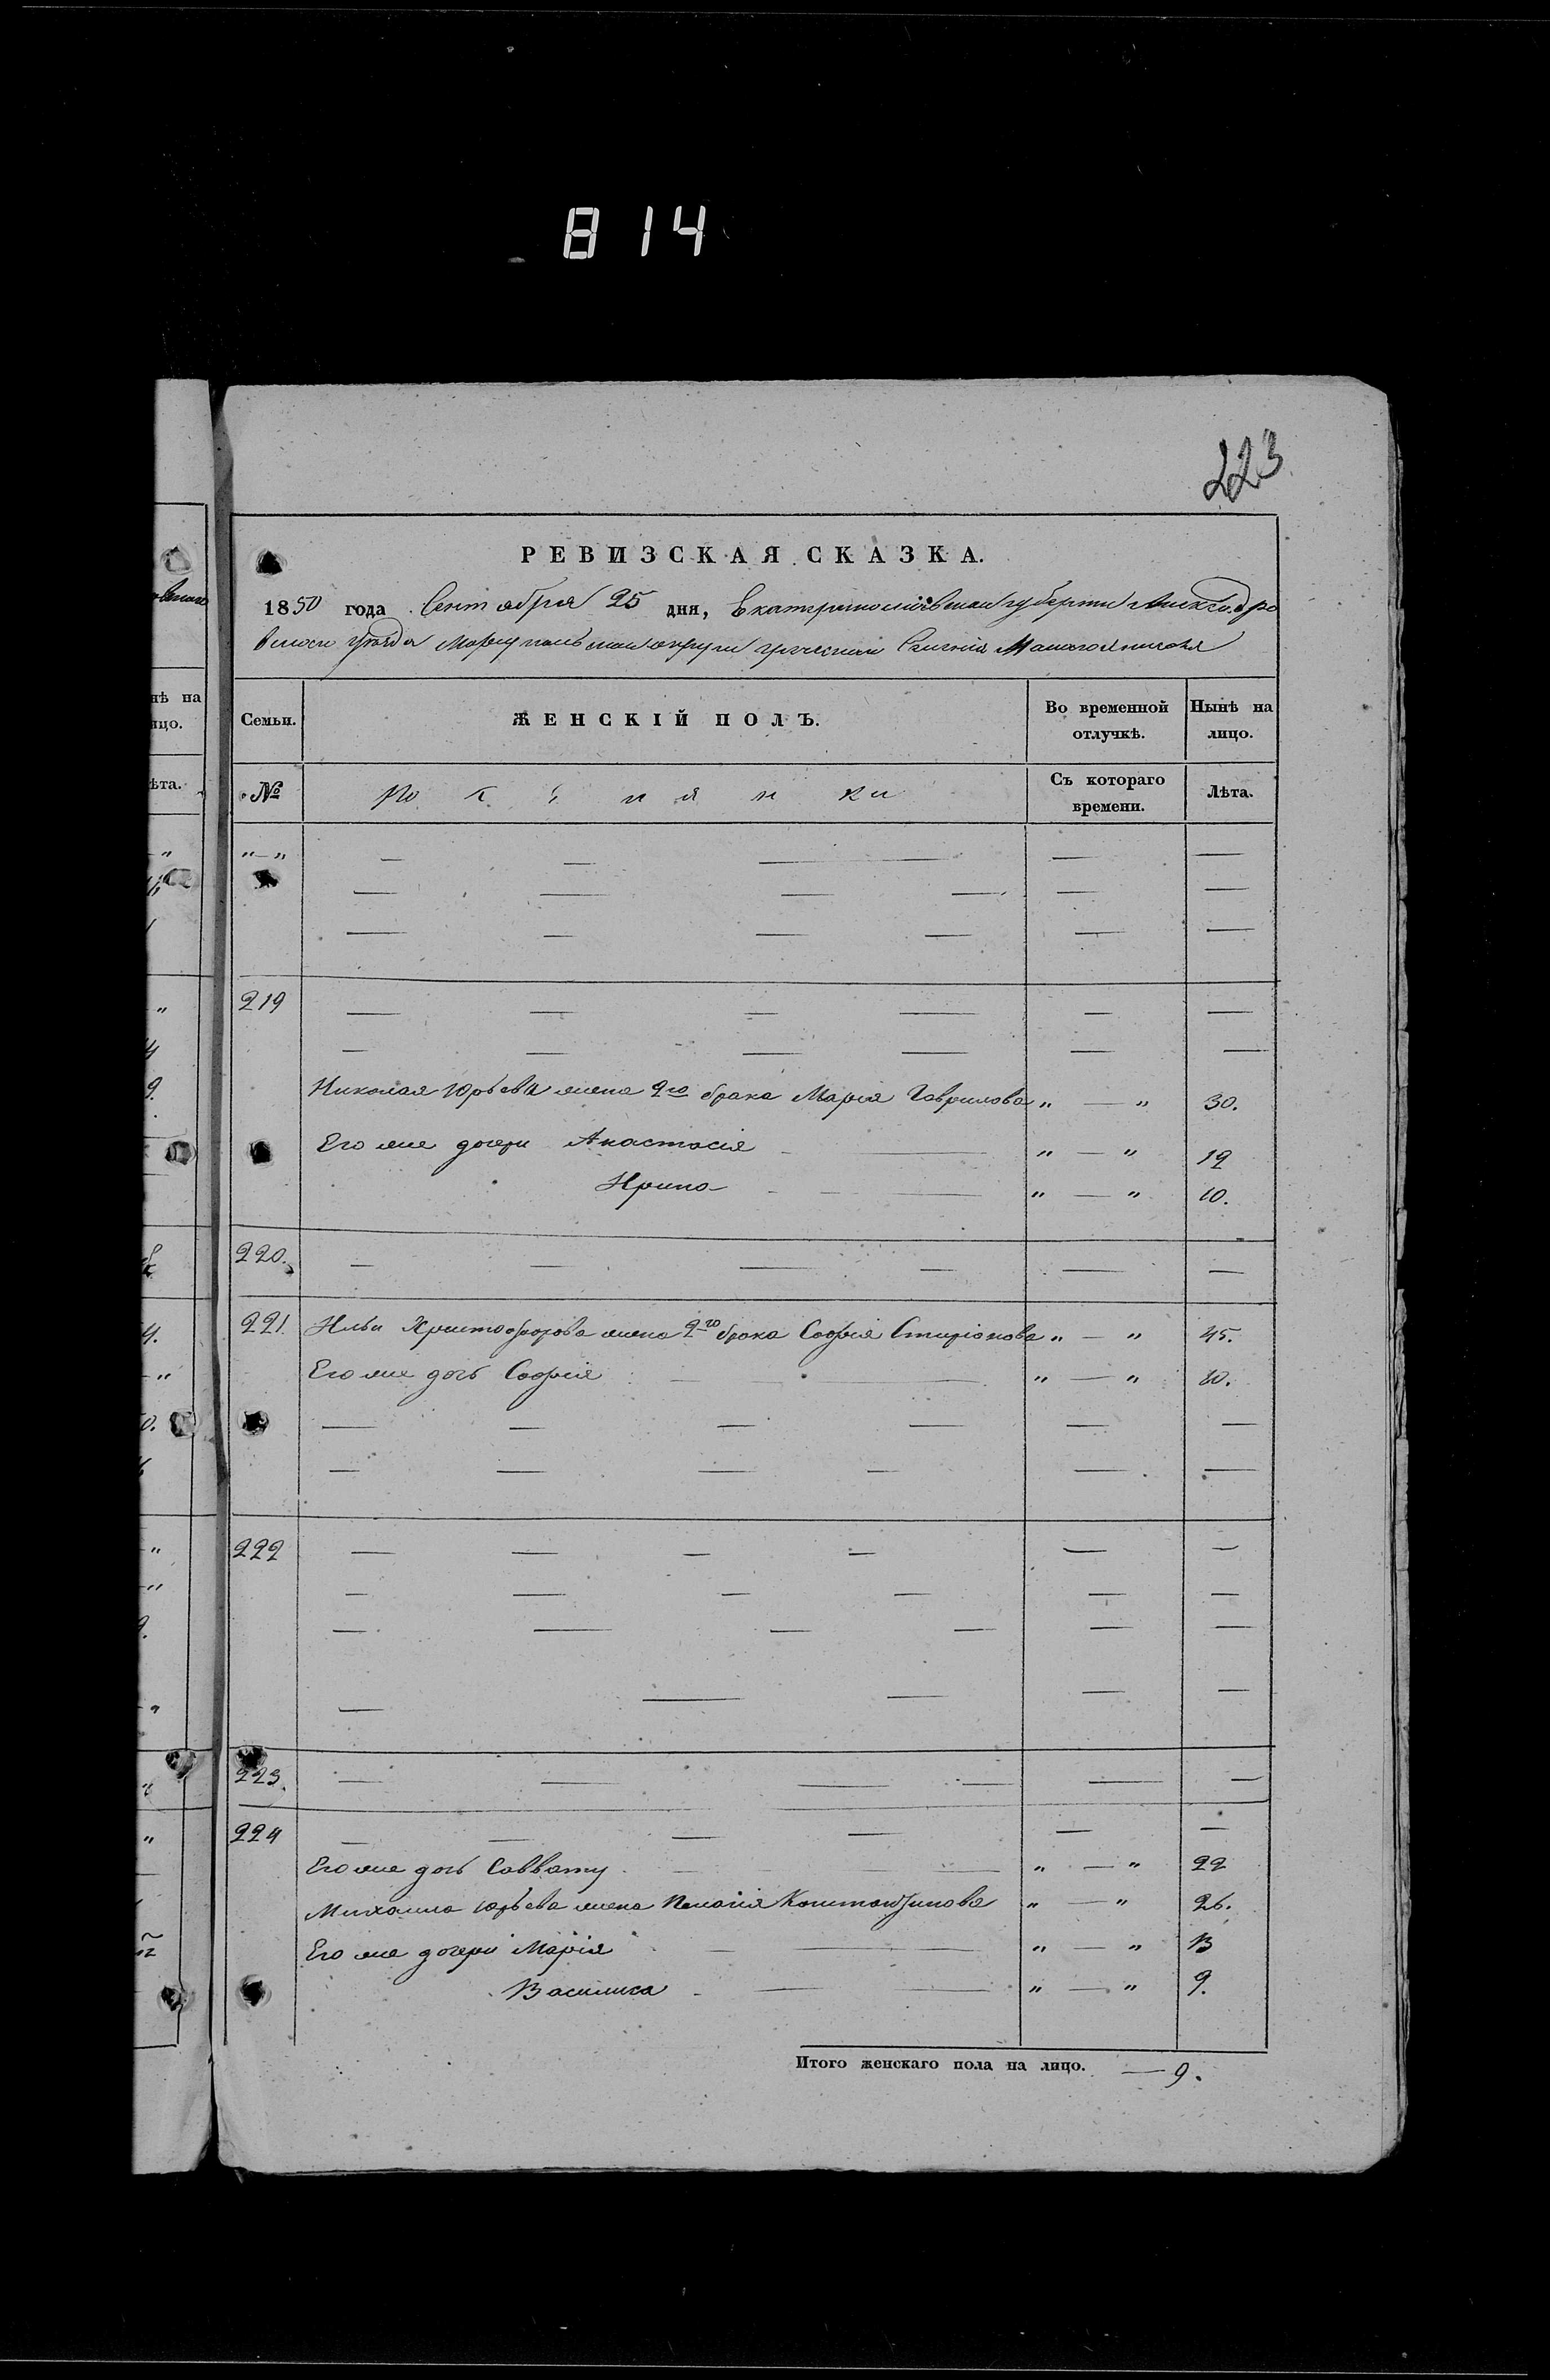 814
223
РЕВИЗСКАЯ СКАЗКА.
1850 года Сентября 25 дня, Екатеринославской губернии Александро
вскаго уѣзда Мариупольскаго округа греческаго Селенія Малаго Янисоля
нѣ на
ицо.
Семьи.
ЖЕНСКІЙ ПОЛЪ.
Во временной отлучкѣ.
Нынѣ на лицо.
ѣта.
№
Съ котораго времени.
Лѣта.
" — "
219
Николая Юрьева жена 2го брака Марія Гаврилова " — " 30.
Его же дочери Анастасія " — " 12
Ирина " — " 10.
220.
221. Ильи Христофорова жена 2го брака Софія Спиріонова " — " 45.
Его же дочь Софія " — " 10.
222
223.
224
Его же дочь Саввату " — " 22
Михаила Юрьева жена Пелагія Константинова " — " 26.
Его же дочери Марія " — " 13
Василиса " — " 9.
Итого женскаго пола на лицо. — 9.